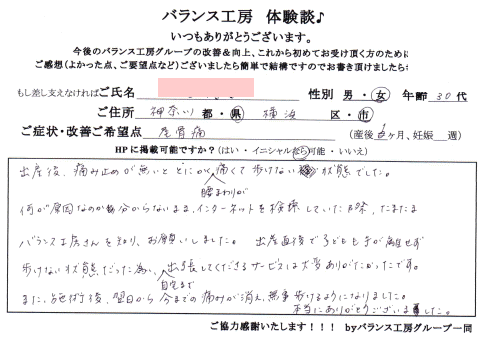 バランス工房 体験談♪
いつもありがとうございます。
今後のバランス工房グループの改善&向上、これから初めてお受け頂く方のために
ご感想(よかった点、ご要望点など)ございましたら簡単で結構ですのでお書き頂けましたら
もし差し支えなければご氏名 性別 男・女 年齢 30代
ご住所 神奈川 都・県 横浜 区・市
ご症状・改善ご希望点 尾骨痛 (産後 ヶ月、妊娠 週)
HPに掲載可能ですか?(はい・イニシャルなら可能・いいえ)
出産後、痛み止めが無いと とにかく痛くて歩けない状態でした。
腰まわりが
何が原因なのか分からないまま、インターネットを検索していた際、たまたま
バランス工房さんを知り、お願いしました。 出産直後で子どもと手が離せず
歩けない状態だった為、出張してくださるサービスは大変ありがたかったです。
自宅まで
また、施術後、翌日から今までの痛みが消え、無事歩けるようになりました。
本当にありがとうございました。
ご協力感謝いたします!!! byバランス工房グループ一同